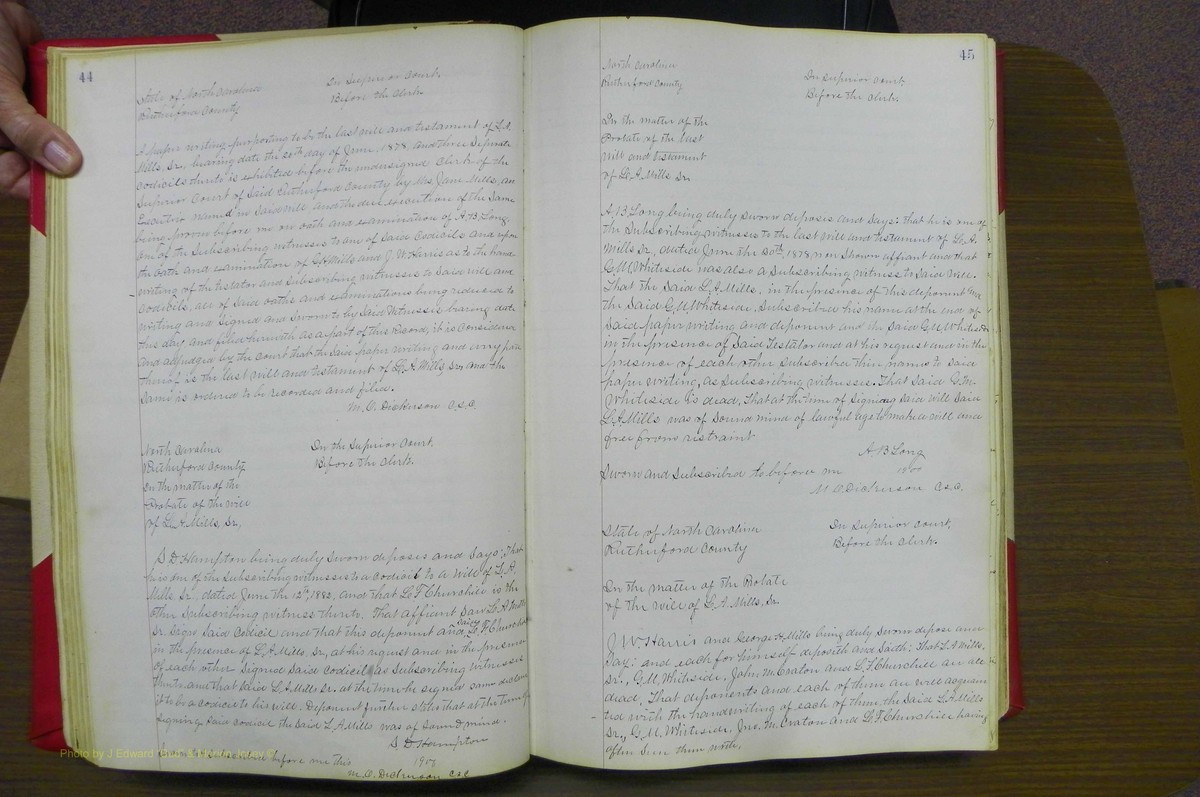 44
State of North Carolina In Superior Court.
Rutherford County Before the Clerk.
A paper writing purporting to be the last will and testament of L.A.
Mills, Sr., bearing date the 20th day of June, 1878, and three separate
codicils thereto is exhibited before the undersigned Clerk of the
Superior Court of Said Rutherford County by Mrs. Jane Mills, an
Executrix named in Said will and the due execution of the Same
being proven before me on oath and examination of A.B. Long,
one of the Subscribing witnesses to one of Said Codicils and upon
the oath and examination of G.H. Mills and J.W. Harris as to the hand
writing of the testator and Subscribing witnesses to Said will and
codicils, all of Said oaths and examinations being reduced to
writing and Signed and Sworn to by Said Witnesses bearing date
this day, and filed herewith as a part of this Record, it is considered
and adjudged by the court that the Said paper writing and every part
thereof is the last will and testament of L.A. Mills, Sr., and the
Same is ordered to be recorded and filed.
M.O. Dickerson C.S.C.
North Carolina In the Superior Court.
Rutherford County Before the Clerk.
In the matter of the
Probate of the will
of L.A. Mills, Sr.,
S.D. Hampton being duly Sworn deposes and Says: That
he is one of the Subscribing witnesses to a codicil to a will of L.A.
Mills Sr. dated June the 12th, 1882, and that L.F. Churchill is the
other Subscribing witness thereto. That affiant Saw L.A. Mills
Sr. Sign Said Codicil and that this deponent and Said L.F. Churchill
in the presence of L.A. Mills Sr., at his request and in the presence
of each other Signed Said codicil as Subscribing witnesses
thereto and that Said L.A. Mills Sr. at the time he signed same declared
it to be a codicil to his will. Deponent further states that at the time of
Signing Said codicil the Said L.A. Mills was of Sound mind.
S.D. Hampton
before me this 1900
M.O. Dickerson CSC
45
North Carolina In Superior Court,
Rutherford County Before the Clerk.
In the matter of the
Probate of the last
will and testament
of L.A. Mills Sr.
A.B. Long being duly sworn deposes and Says: That he is one of
the Subscribing witnesses to the last will and testament of L.A.
Mills Sr., dated June the 20th, 1878 now Shown affiant and that
G.M. Whiteside was also a Subscribing witness to Said Will.
That the Said L.A. Mills, in the presence of this deponent and
the Said G.M. Whiteside, Subscribed his name at the end of
Said paper writing and deponent and the Said G.M. Whiteside
in the presence of Said Testator and at his request and in the
presence of each other Subscribed their names to Said
paper writing, as Subscribing witnesses. That Said G.M.
Whiteside is dead, That at the time of Signing Said will Said
L.A. Mills was of Sound mind of lawful age to make a will and
free from restraint
A.B. Long
Sworn and Subscribed to before me 1900
M.O. Dickerson C.S.C.
State of North Carolina In Superior Court,
Rutherford County Before the Clerk.
In the matter of the Probate
of the will of L.A. Mills, Sr.
J.W. Harris and George H. Mills being duly Sworn depose and
Say: and each for himself deposeth and Saith: That L.A. Mills.
Sr., G.M. Whiteside, John M. Craton and L.F. Churchill are all
dead, That deponents and each of them are well acquain
ted with the handwriting of each of them, the Said L.A. Mills
Sr., G.M. Whiteside, Jno. M. Craton and L.F. Churchill having
often Seen them write,